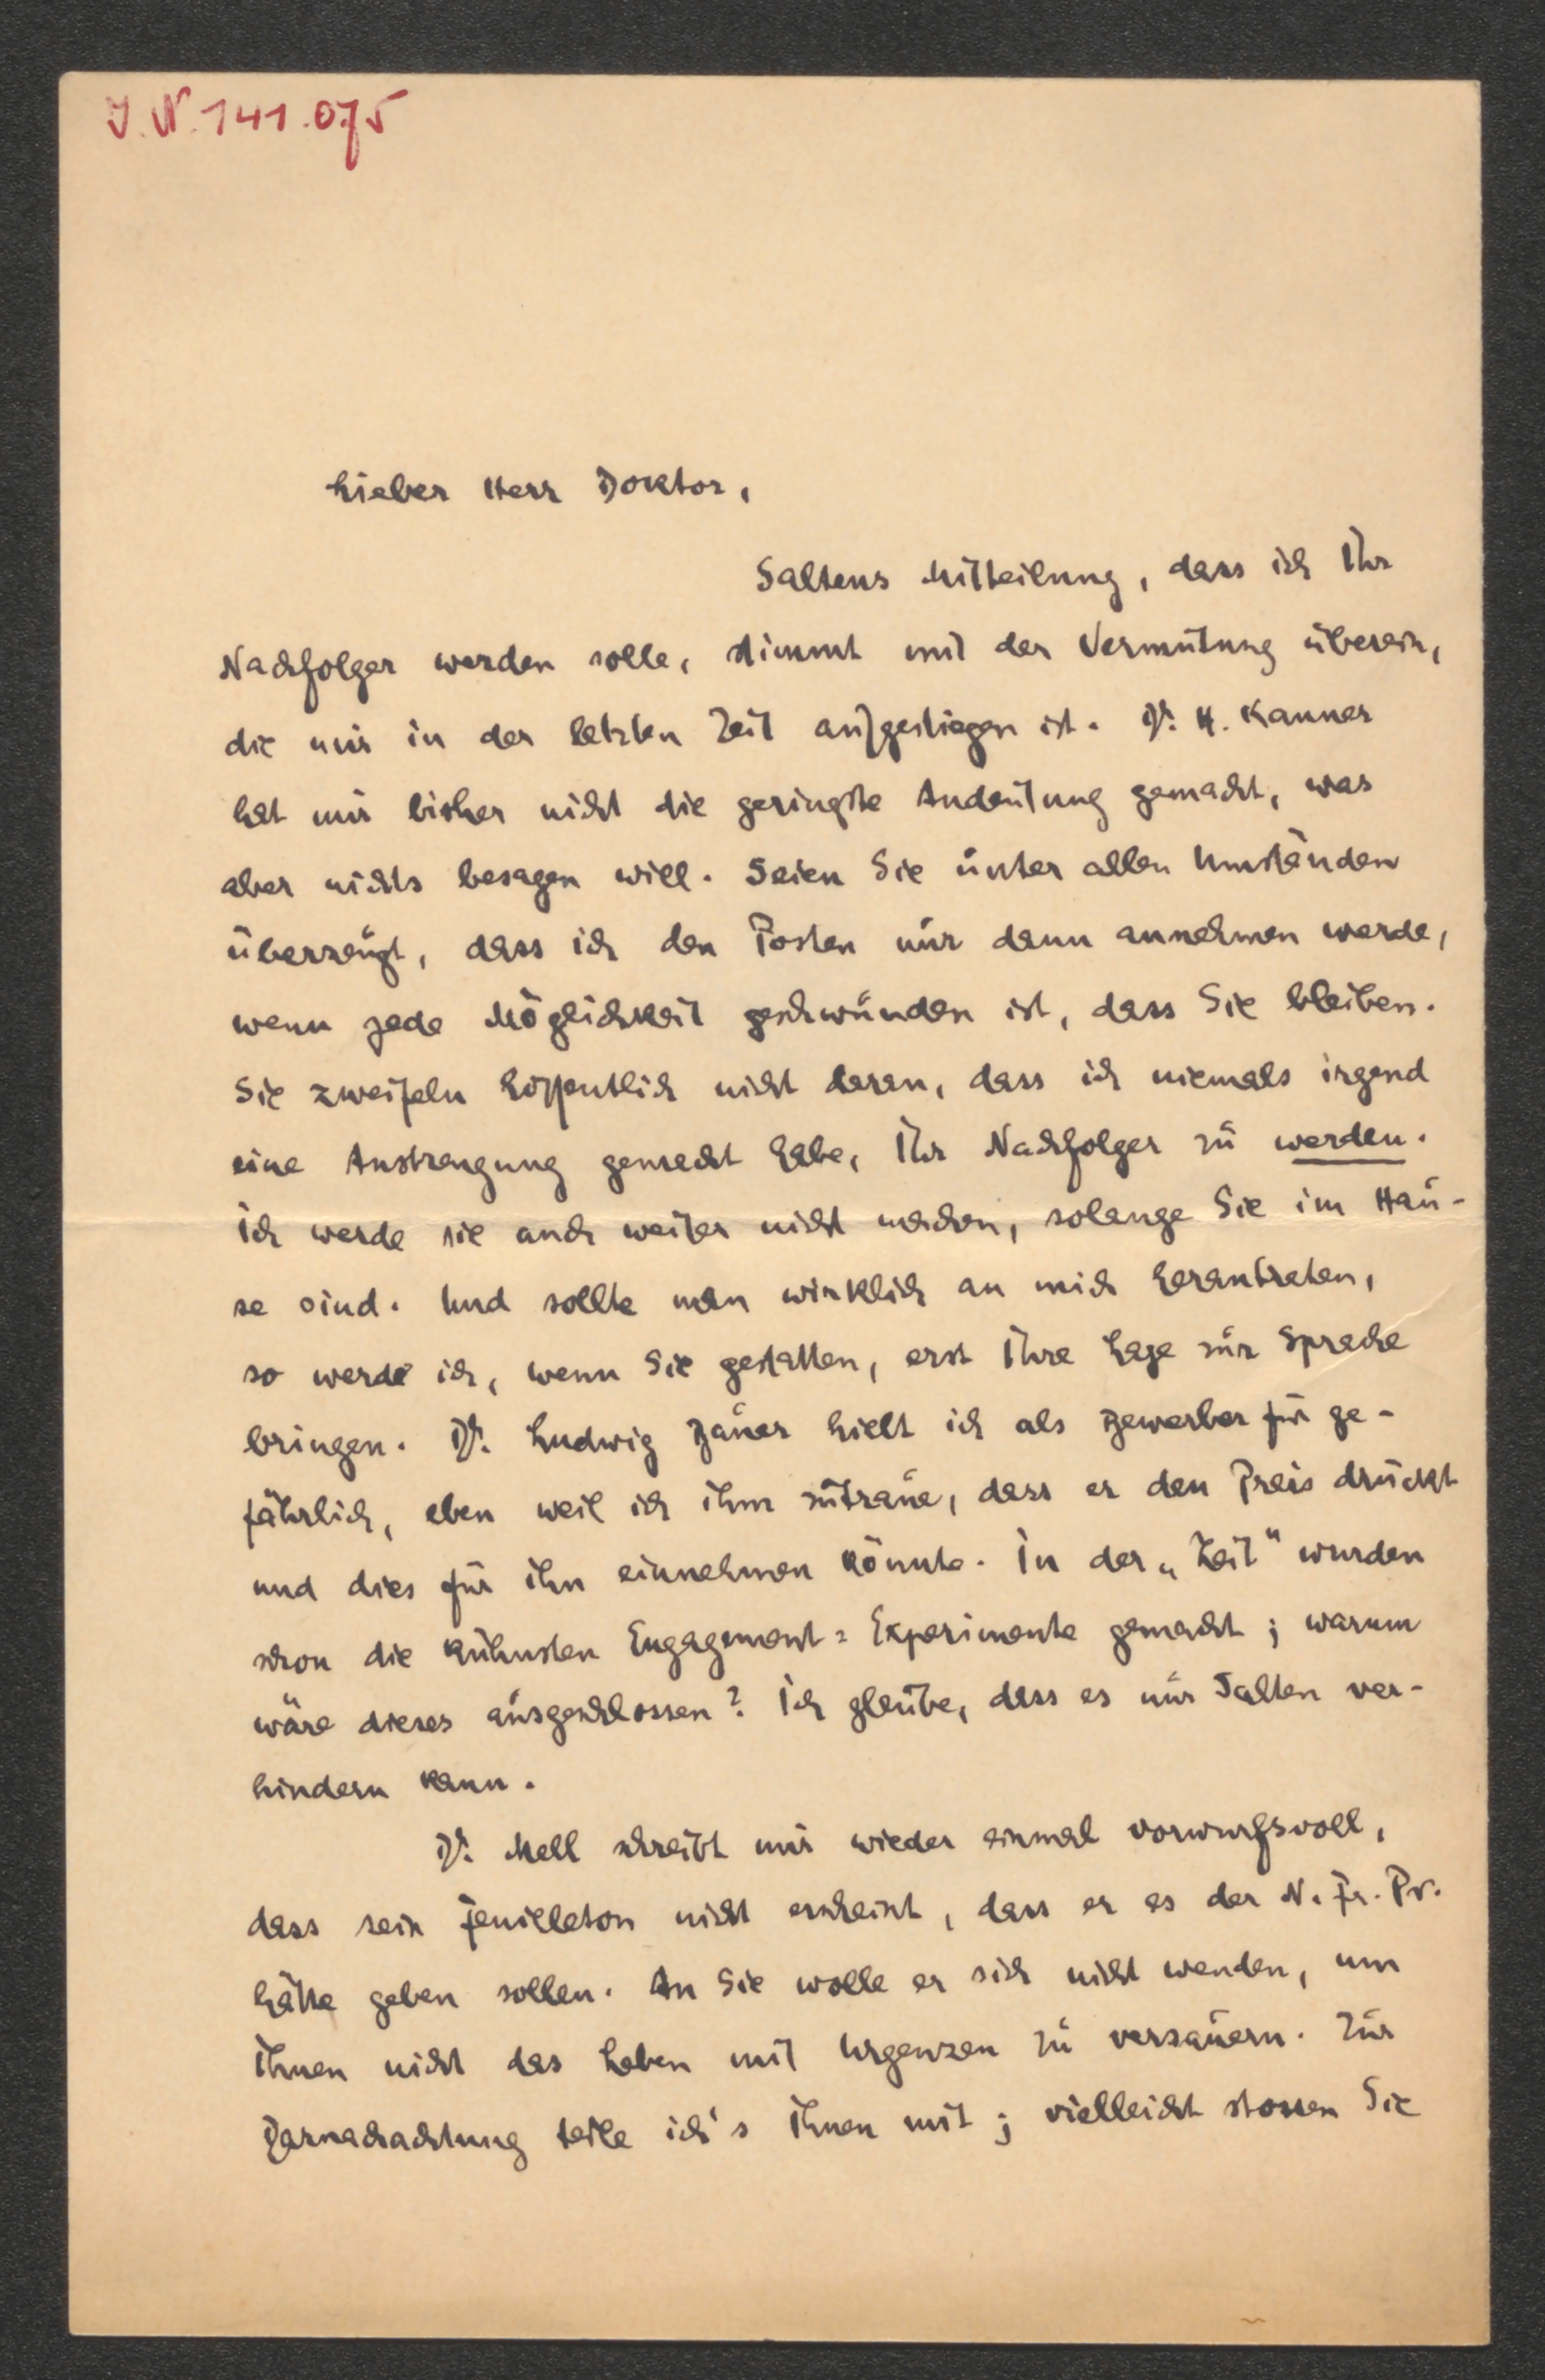 J. N. 141.075
Lieber Herr Doktor,
Saltens Mitteilung, dass ich Ihr
Nachfolger werden solle, stimmt mit der Vermutung überein,
die mir in der letzten Zeit aufgestiegen ist. Dr. H. Kanner
hat mir bisher nicht die geringste Andeutung gemacht, was
aber nichts besagen will. Seien Sie unter allen Umständen
überzeugt, dass ich den Posten nur dann annehmen werde,
wenn jede Möglichkeit geschwunden ist, dass Sie bleiben.
Sie zweifeln hoffentlich nicht daran, dass ich niemals irgend
eine Anstrengung gemacht habe, Ihr Nachfolger zu werden.
Ich werde sie auch weiter nicht machen, solange Sie im Hau-
se sind. Und sollte man wirklich an mich herantreten,
so werde ich, wenn Sie gestatten, erst Ihre Lage zur Sprache
bringen. Dr. Ludwig Bauer hielt ich als Bewerber für ge-
fährlich, eben weil ich ihm zutraue, dass er den Preis drückt
und dies für ihn einnehmen könnte. In der „Zeit“ wurden
schon die kühnsten Engagement-Experimente gemacht; warum
wäre dieses ausgeschlossen? Ich glaube, dass es nur Salten ver-
hindern kann.
Dr. Mell schreibt mir wieder einmal vorwurfsvoll,
dass sein Feuilleton nicht erscheint, dass er es der N. Fr. Pr.
hätte geben sollen. An Sie wolle er sich nicht wenden, um
Ihnen nicht das Leben mit Urgenzen zu versauern. Zur
Darnachachtung teile ich's Ihnen mit; vielleicht stossen Sie